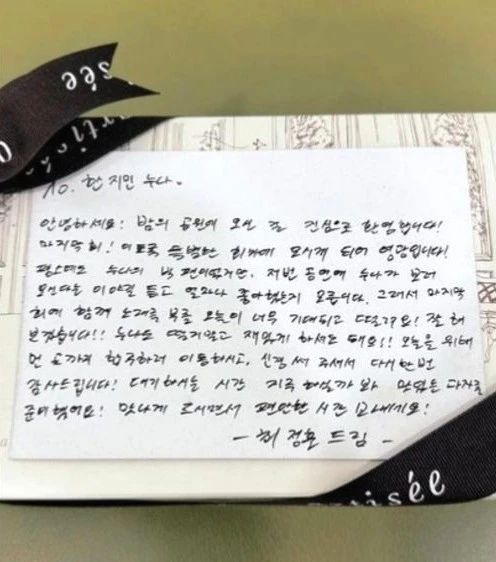 To. 한지민 누나.
안녕하세요! 밤의 공원에 오신 걸 진심으로 환영합니다!
마지막회! 이토록 특별한 회차에 모시게 되어 영광입니다!
평소에도 누나의 빅 팬이었지만, 저번 공연에 누나가 보러
오신다는 이야길 듣고 얼마나 좋아했는지 모릅니다. 그래서 마지막
회에 함께 노래를 부를 오늘이 너무 기대되고 떨려요! 잘 해
보겠습니다!! 누나도 떨지말고 재밌게 하셔도 돼요!! 오늘을 위해
먼 곳까지 합주하러 이동하시고, 신경 써 주셔서 다시 한번
감사드립니다! 대기하시는 시간 지루하실까 봐 맛있는 과자를
준비했어요! 맛나게 드시면서 편안한 시간 보내세요!
- 최정훈 드림 -
artisée
artisée